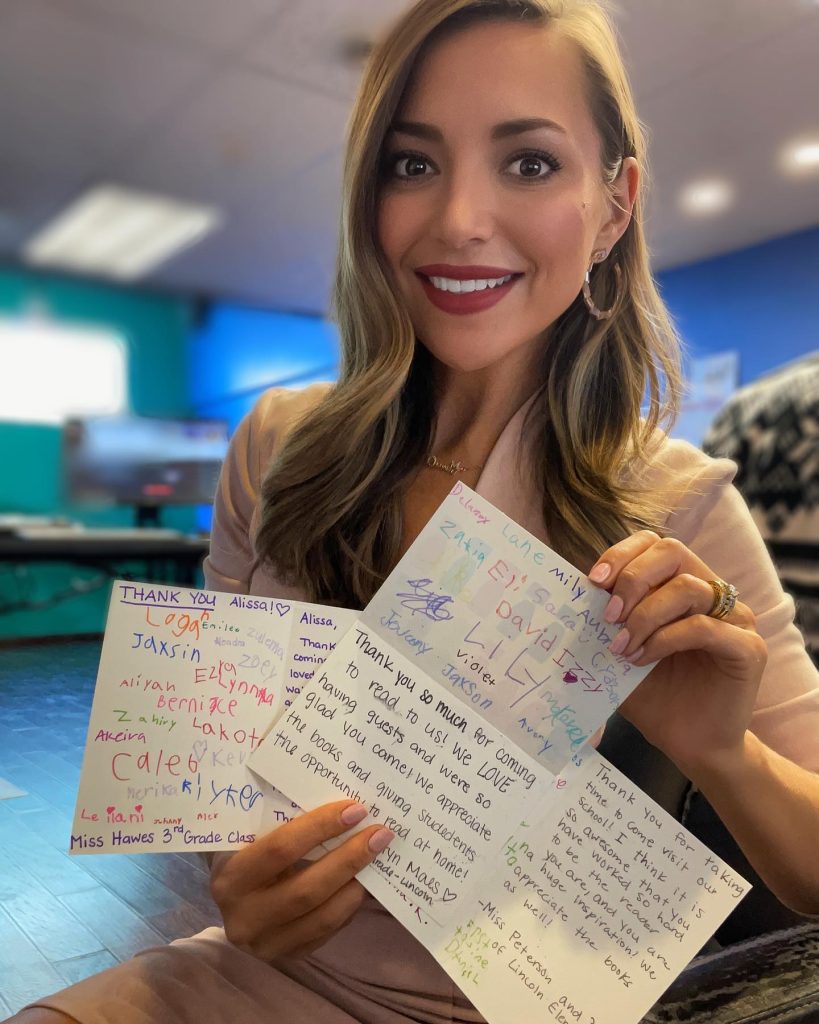 THANK YOU Alissa! ♡
Logan
Emilee
Zulema
Jaxsin
Neadra
Zoey
Ezra
Lynnrya
Aliyah
Bernice
Zahiry
Lakot
Akeira
Caleb
Kev
Merika
Kiyker
Leilani
Johnny
Nick
Miss Hawes 3rd Grade Class
Alissa,
Thank
coming
loved
wai
a
Than
Thank you so much for coming
to read to us! We LOVE
having guests and were so
glad you came! We appreciate
the books and giving studedents
the opportunity to read at home!
ryn Maes ♡
rade-Lincoln
Delaney
Lane
Mily
Zakia
Eli
Sara
Aubr
David
Izzy
LILY
violet
Jaxson
Avony
Thank you for taking
time to come visit our
school! I think it is
so awesome that you
have worked so hard
to be the reader
you are, and you are
a huge inspiration! We
appreciate the books
as well!
-Miss Peterson and
of Lincoln Elem